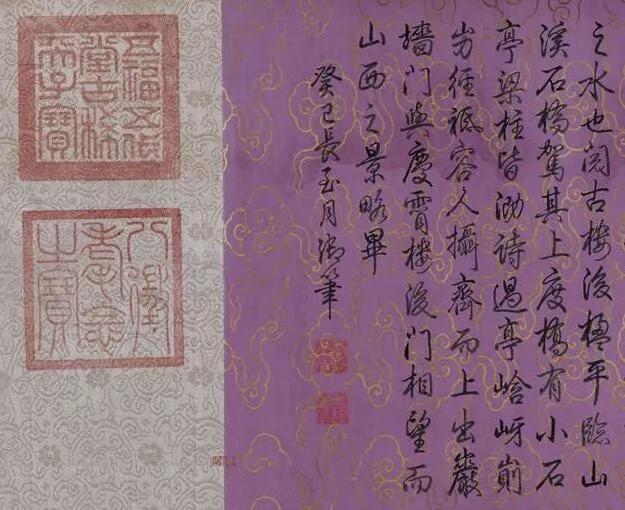 之水也閱古樓後楹平臨山
溪石橋駕其上度橋有小石
亭梁柱皆泐詩過亭峆岈崱
屴徑祗容人攝齊而上出巖
墻門與慶霄樓後門相望而
山西之景略畢
癸巳長至月御筆
五福五代
堂古稀
天子寶
八徵
耄念
之寶